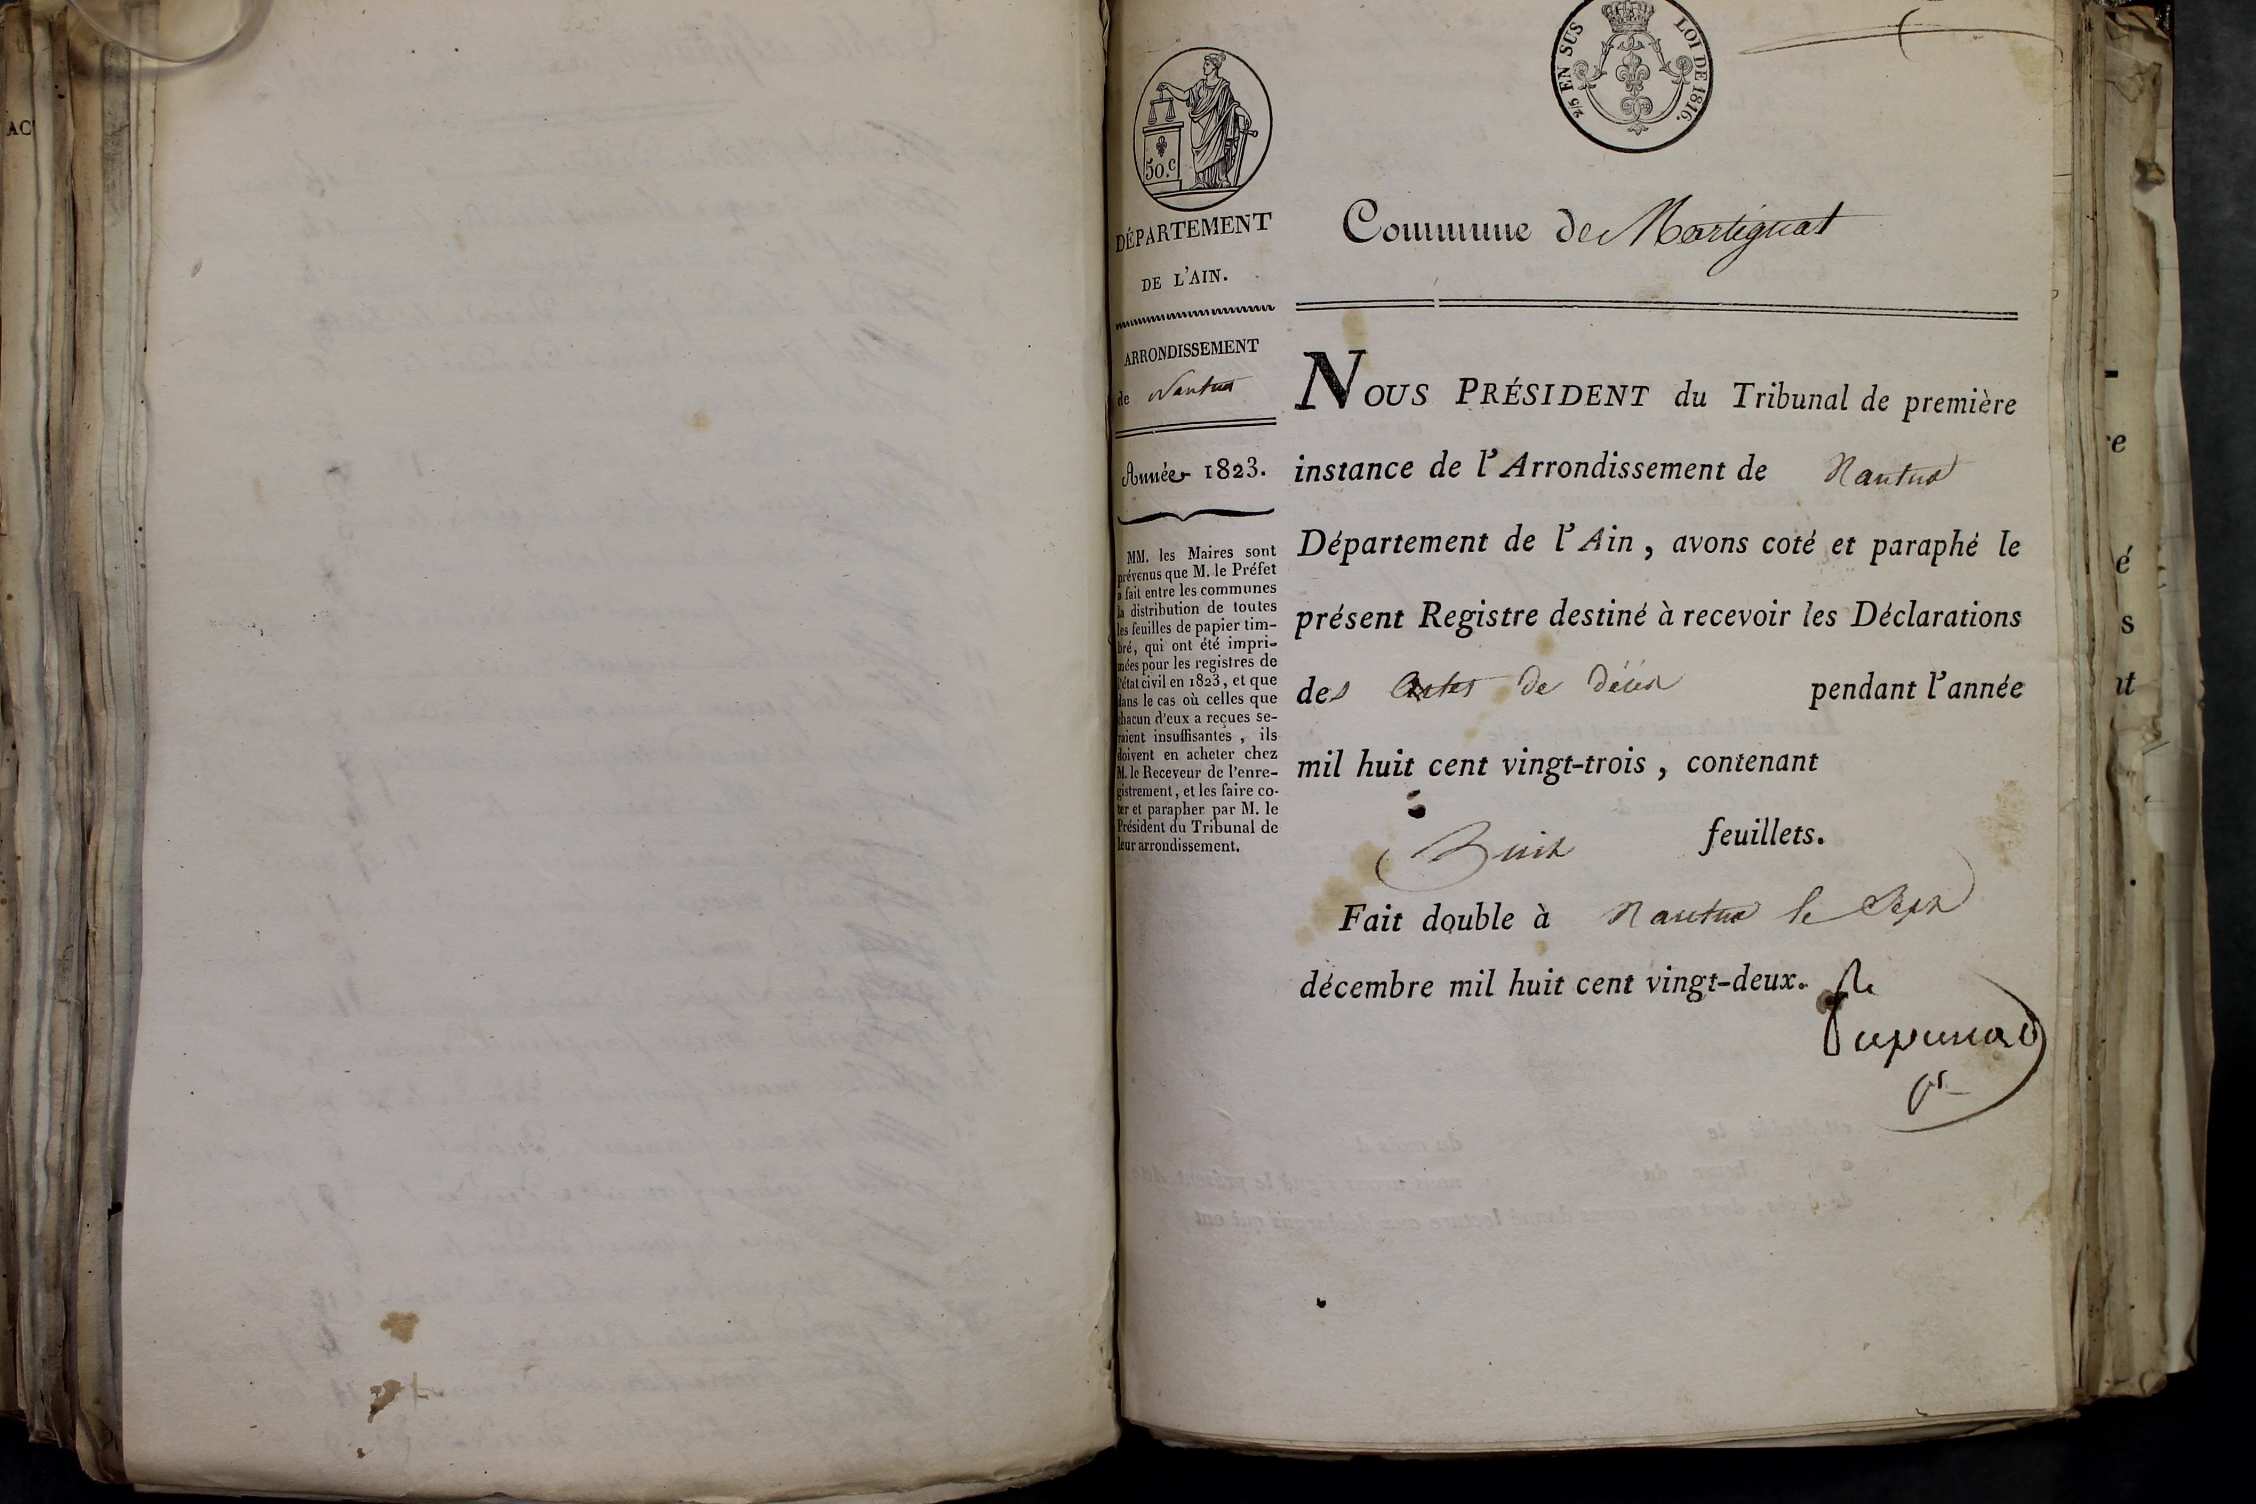 AC
2/5 EN SUS LOI DE 1816.
50.c
DÉPARTEMENT
DE L'AIN.
ARRONDISSEMENT
de Nantua
Année 1823.
MM. les Maires sont
prévenus que M. le Préfet
a fait entre les communes
la distribution de toutes
les feuilles de papier tim-
bré, qui ont été impri-
mées pour les registres de
l'état civil en 1823, et que
dans le cas où celles que
chacun d'eux a reçues se-
raient insuffisantes, ils
doivent en acheter chez
M. le Receveur de l'enre-
gistrement, et les faire co-
ter et parapher par M. le
Président du Tribunal de
leur arrondissement.
Commune de Martignat
NOUS PRÉSIDENT du Tribunal de première
instance de l'Arrondissement de Nantua
Département de l'Ain, avons coté et paraphé le
présent Registre destiné à recevoir les Déclarations
des Actes de décès pendant l'année
mil huit cent vingt-trois, contenant
huit feuillets.
Fait double à Nantua le Sept
décembre mil huit cent vingt-deux.
e
é
s
nt